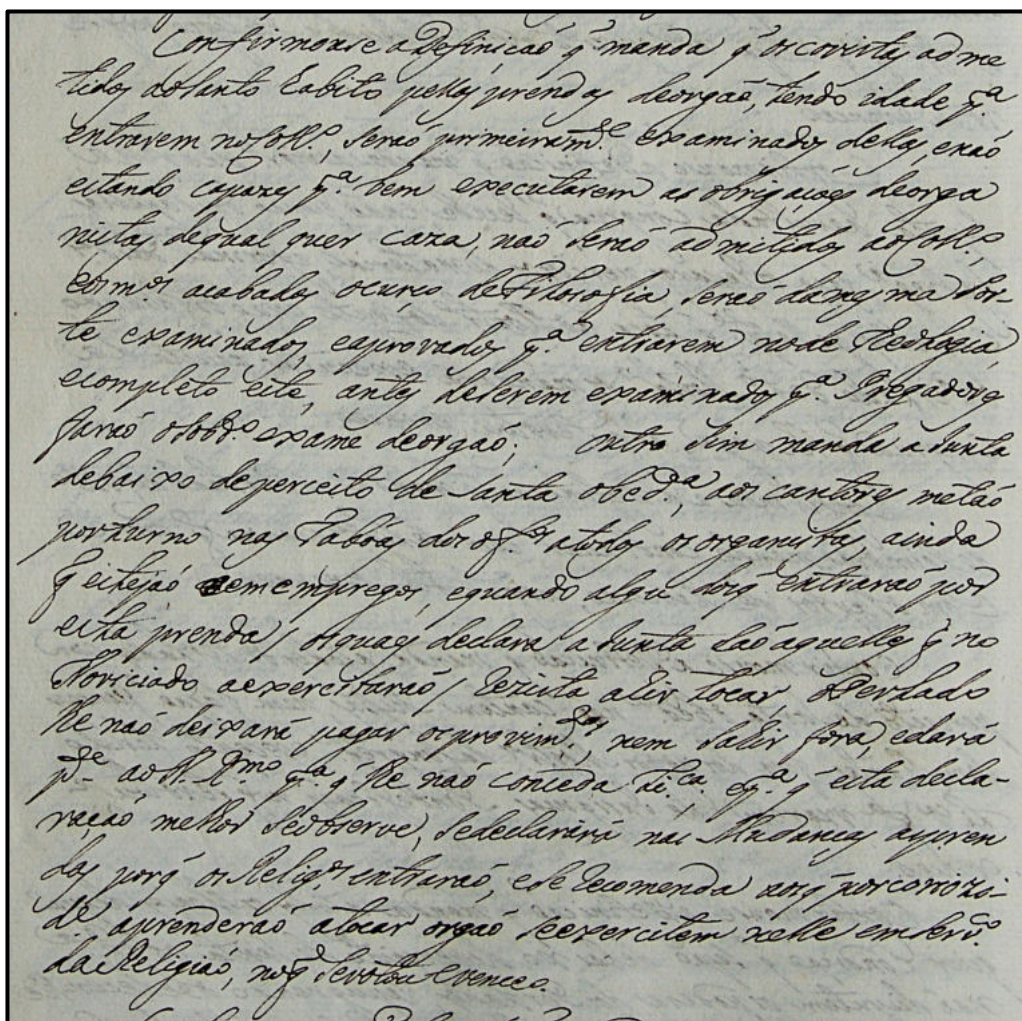 Confirmouse a Definicaõ q̃ manda q̃ os coristas adme
tidos ao Santo Habito pellas prendas de orgaõ, tendo idade p.ª
entrarem no Coll.º, seraõ primeiram.te examinados dellas, e naõ
estando capazes p.ª bem executarem as obrigaçoẽs de orga
nistas de qual quer caza, naõ seraõ admitidos ao Coll.º,
e os m.os acabados o curso de Filosofia, seraõ da mesma sor-
te examinados, e aprovados p.ª entrarem no de Theologia,
e completo este, antes de serem examinados p.ª Pregadores
faraõ o sobd.º exame de orgaõ; outro sim manda a Junta
debaixo de perceito de Santa obed.ª, aos cantores metaõ
por turno nas Taboas dos off.os a todos os organistas, ainda
q̃ estejaõ sem empregos, e quando algũ dos q̃ entraraõ por
esta prenda / os quaes declara a Junta saõ aquelles q̃ no
Noviciado a exercitaraõ / rezista a hir tocar, o Perlado
lhe naõ deixará pagar os provim.tos, nem sahir fora, e dará
p.te ao N. R.mo p.ª q̃ lhe naõ conceda li.ca e p.ª q̃ esta decla-
raçaõ melhor se observe, se declarará nas Mudancas as pren
das porq̃ os Relig.os entraraõ, e se recomenda aos q̃ por coriozi-
d.e aprenderaõ a tocar orgaõ se exercitem nelle em serv.º
da Religiaõ, no q̃ se votou e venceo.